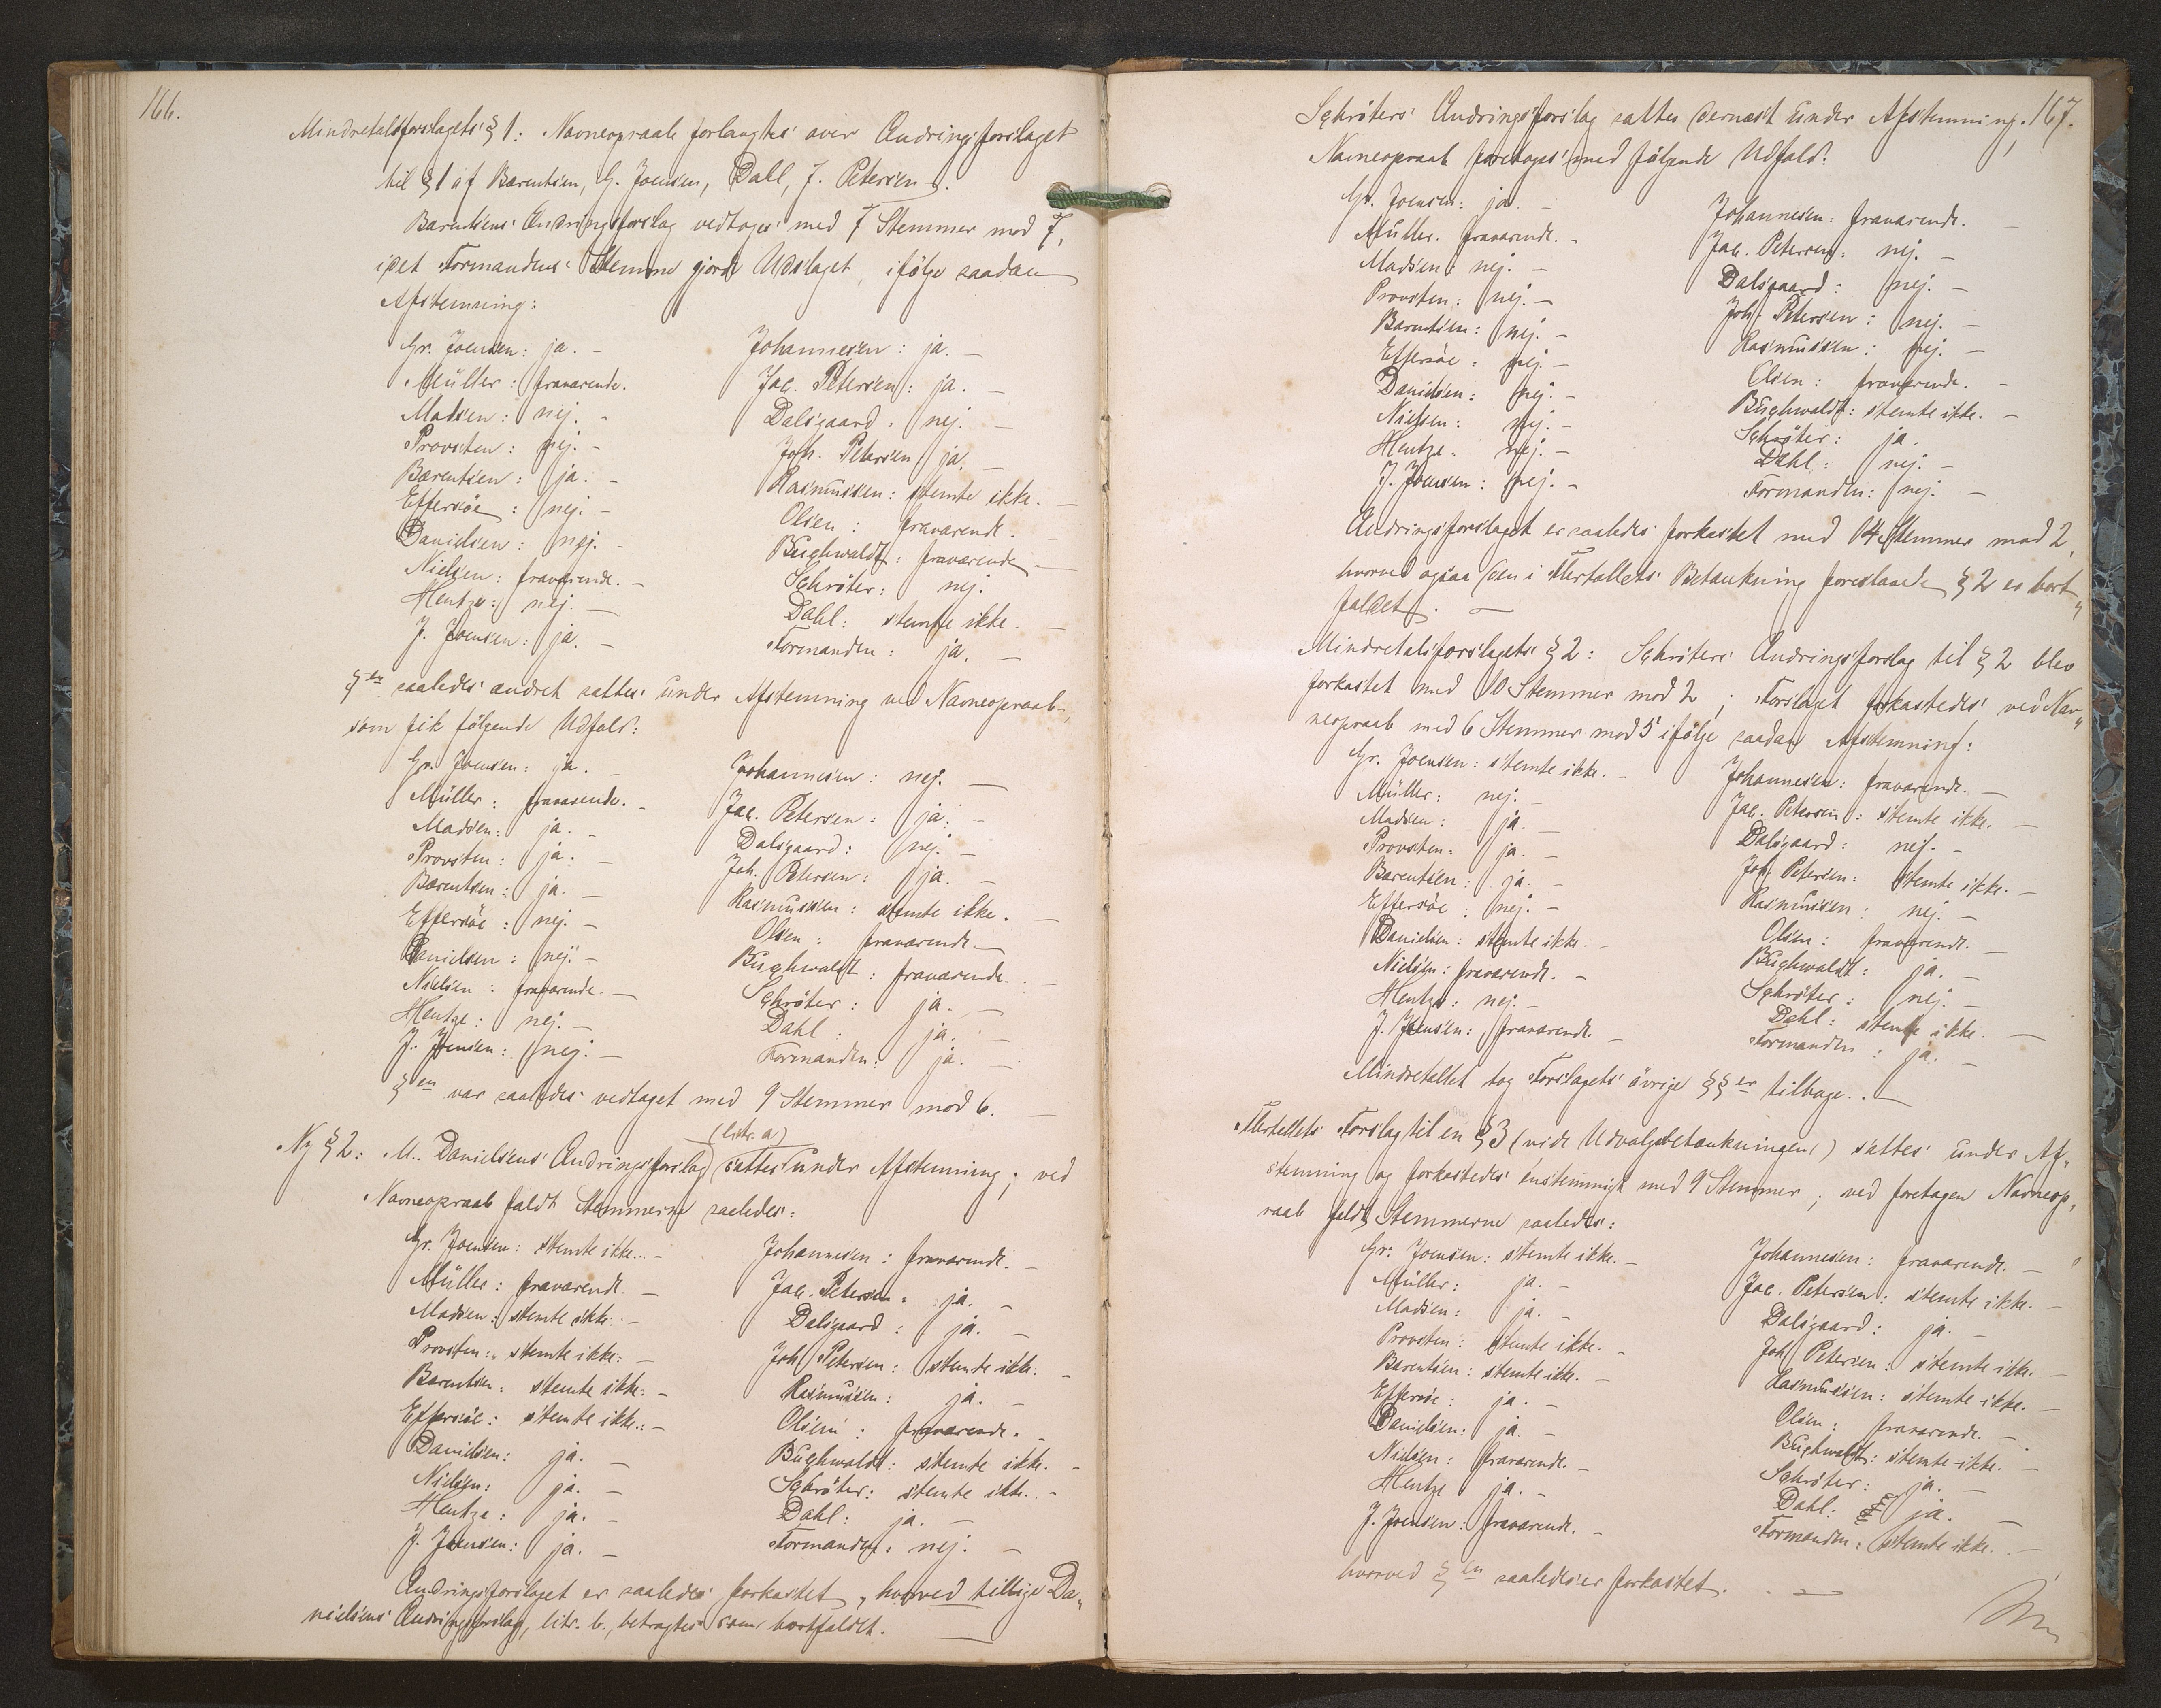 166.
Mindretalsforslagets § 1: Navneopraab forlangtes over Ændringsforslaget
til § 1 af Bærentsen, G. Joensen, Dahl, J. Petersen.
Bærentsens Ændringsforslag vedtoges med 7 Stemmer mod 7,
idet Formandens Stemme gjorde Udslaget, ifølge saadan
Afstemning:
Gr. Joensen: ja. –
Müller: fraværende.
Madsen: nej. –
Provsten: nej. –
Bærentsen: ja. –
Effersöe: nej. –
Danielsen: nej. –
Nielsen: fraværende. –
Hentze: nej. –
J. Joensen: ja. –
Johannesen: ja. –
Jac. Petersen: ja. –
Dalsgaard: nej. –
Joh. Petersen: ja. –
Rasmussen: stemte ikke. –
Olsen: fraværende. –
Buchwaldt: fraværende –
Schröter: nej.
Dahl: stemte ikke. –
Formanden: ja. –
§en saaledes ændret sattes under Afstemning ved Navneopraab,
som fik følgende Udfald:
Gr. Joensen: ja. –
Müller: fraværende. –
Madsen: ja. –
Provsten: ja. –
Bærentsen: ja. –
Effersöe: nej. –
Danielsen: nej. –
Nielsen: fraværende. –
Hentze: nej. –
J. Joensen: nej. –
Johannesen: nej. –
Jac. Petersen: ja. –
Dalsgaard: nej. –
Joh. Petersen: ja. –
Rasmussen: stemte ikke. –
Olsen: fraværende. –
Buchwaldt: fraværende. –
Schröter: ja. –
Dahl: ja. –
Formanden: ja. –
§en var saaledes vedtaget med 9 Stemmer mod 6. –
(litr. a)
Ny § 2: M. Danielsens Ændringsforslag sattes under Afstemning; ved
Navneopraab faldt Stemmerne saaledes:
Gr. Joensen: stemte ikke. –
Müller: fraværende. –
Madsen: stemte ikke. –
Provsten: stemte ikke. –
Bærentsen: stemte ikke. –
Effersöe: stemte ikke. –
Danielsen: ja. –
Nielsen: ja. –
Hentze: ja. –
J. Joensen: ja. –
Johannesen: fraværende. –
Jac. Petersen: ja. –
Dalsgaard: ja. –
Joh. Petersen: stemte ikke. –
Rasmussen: ja. –
Olsen: fraværende. –
Buchwaldt: stemte ikke. –
Schröter: stemte ikke. –
Dahl: ja. –
Formanden: nej. –
Ændringsforslaget er saaledes forkastet, hvorved tillige Da„
nielsens Ændringsforslag, litr. b., betragtes som bortfaldet. –
167.
Schröters Ændringsforslag sattes dernæst under Afstemning.
Navneopraab foretoges med følgende Udfald:
Gr. Joensen: ja. –
Müller: fraværende. –
Madsen: nej. –
Provsten: nej. –
Bærentsen: nej. –
Effersöe: nej. –
Danielsen: nej. –
Nielsen: nej. –
Hentze: nej. –
J. Joensen: nej. –
Johannesen: fraværende. –
Jac. Petersen: nej. –
Dalsgaard: nej. –
Joh. Petersen: nej. –
Rasmussen: nej. –
Olsen: fraværende. –
Buchwaldt: stemte ikke. –
Schröter: ja.
Dahl: nej. –
Formanden: nej. –
Ændringsforslaget er saaledes forkastet med 14 Stemmer mod 2,
hvorved ogsaa den i Flertallets Betænkning foreslaaede § 2 er bort„
faldet. –
Mindretalsforslagets § 2: Schröters Ændringsforslag til § 2 blev
forkastet med 10 Stemmer mod 2; Forslaget forkastedes ved Nav„
neopraab med 6 Stemmer mod 5 ifølge saadan Afstemning:
Gr. Joensen: stemte ikke. –
Müller: nej. –
Madsen: ja. –
Provsten: ja. –
Bærentsen: ja. –
Effersöe: nej. –
Danielsen: stemte ikke. –
Nielsen: fraværende. –
Hentze: nej. –
J. Joensen: fraværende. –
Johannesen: fraværende. –
Jac. Petersen: stemte ikke. –
Dalsgaard: nej. –
Joh. Petersen: stemte ikke. –
Rasmussen: nej. –
Olsen: fraværende. –
Buchwaldt: ja. –
Schröter: nej. –
Dahl: stemte ikke. –
Formanden: ja. –
Mindretallet tog Forslagets øvrige §§er tilbage. –
Flertallets Forslag til en § 3 (vide Udvalgsbetænkningen) sattes under Af„
stemning og forkastedes enstemmigt med 9 Stemmer; ved foretagen Navneop„
raab faldt Stemmerne saaledes:
Gr. Joensen: stemte ikke. –
Müller: ja. –
Madsen: ja. –
Provsten: stemte ikke. –
Bærentsen: stemte ikke. –
Effersöe: ja. –
Danielsen: ja. –
Nielsen: fraværende. –
Hentze ja. –
J. Joensen: fraværende. –
Johannesen: fraværende. –
Jac. Petersen: stemte ikke. –
Dalsgaard: ja. –
Joh. Petersen: stemte ikke. –
Rasmussen: stemte ikke. –
Olsen: fraværende. –
Buchwaldt: stemte ikke. –
Schröter: ja. –
Dahl: ja. –
Formanden: stemte ikke. –
hvorved §en saaledes er forkastet. –